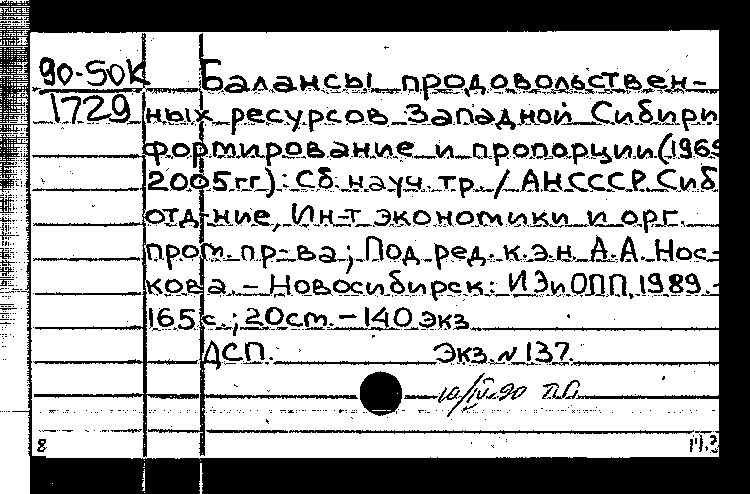 90-50К Балансы продовольствен-
1729 ных ресурсов Западной Сибири
формирование и пропорции (1965
2005гг): Сб науч. тр. / АНСССР. Сиб
отд-ние, Ин-т экономики и орг.
пром. пр-ва; Под ред. к.э.н А.А. Нос-
кова. – Новосибирск: ИЭиОПП, 1989. –
165 с.; 20 ст. – 140 экз
ДСП. Экз. N 137.
10/IV-90 П.П.
8